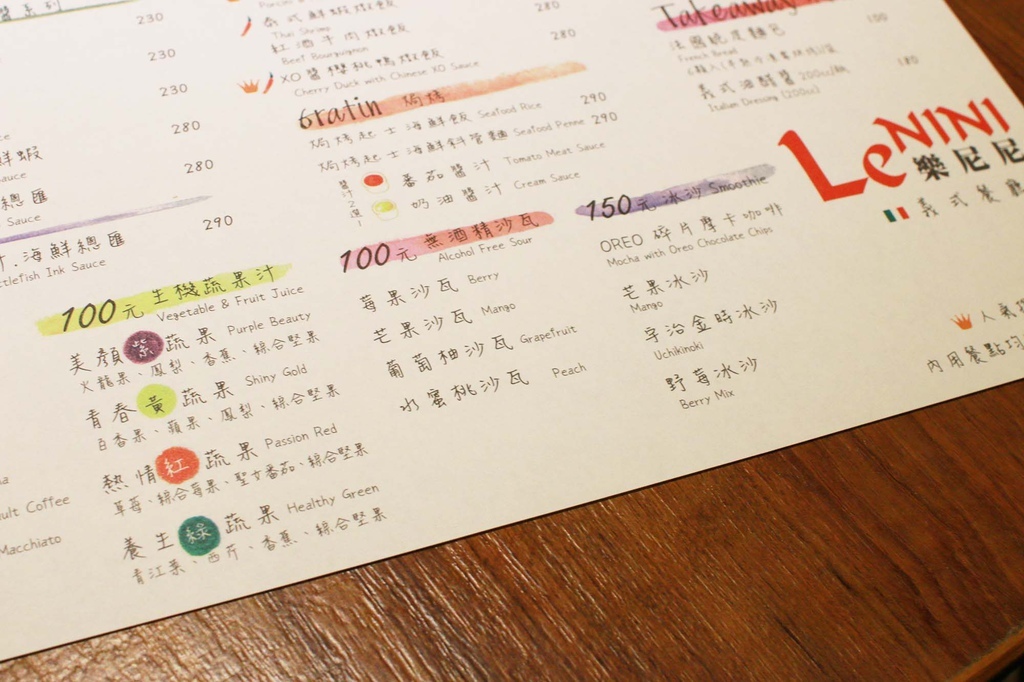 230
230
230
280
鮮蝦
Sauce
280
總匯
Sauce
290
汁.海鮮總匯
ttlefish Ink Sauce
泰式鮮蝦燉飯
Thai Shrimp
280
紅酒牛肉燉飯
Beef Bourguignon
280
XO醬櫻桃鴨燉飯
Cherry Duck with Chinese XO Sauce
Gratin 焗烤
焗烤起士海鮮飯 Seafood Rice 290
焗烤起士海鮮斜管麵 Seafood Penne 290
醬汁2選1
番茄醬汁 Tomato Meat Sauce
奶油醬汁 Cream Sauce
100元 生機蔬果汁
Vegetable & Fruit Juice
美顏紫蔬果 Purple Beauty
火龍果、鳳梨、香蕉、綜合堅果
青春黃蔬果 Shiny Gold
百香果、蘋果、鳳梨、綜合堅果
熱情紅蔬果 Passion Red
草莓、綜合莓果、聖女番茄、綜合堅果
養生綠蔬果 Healthy Green
青江菜、西芹、香蕉、綜合堅果
ult Coffee
Macchiato
100元 無酒精沙瓦
Alcohol Free Sour
莓果沙瓦 Berry
芒果沙瓦 Mango
葡萄柚沙瓦 Grapefruit
水蜜桃沙瓦 Peach
150元 冰沙 Smoothie
OREO 碎片摩卡咖啡
Mocha with Oreo Chocolate Chips
芒果冰沙
Mango
宇治金時冰沙
Uchikinoki
野莓冰沙
Berry Mix
Takeaway
法國脆皮麵包 100
French Bread
義式油醋醬 200cc/瓶 180
Italian Dressing (200cc)
LeNINI
樂尼尼
義式餐廳
人氣
內用餐點均